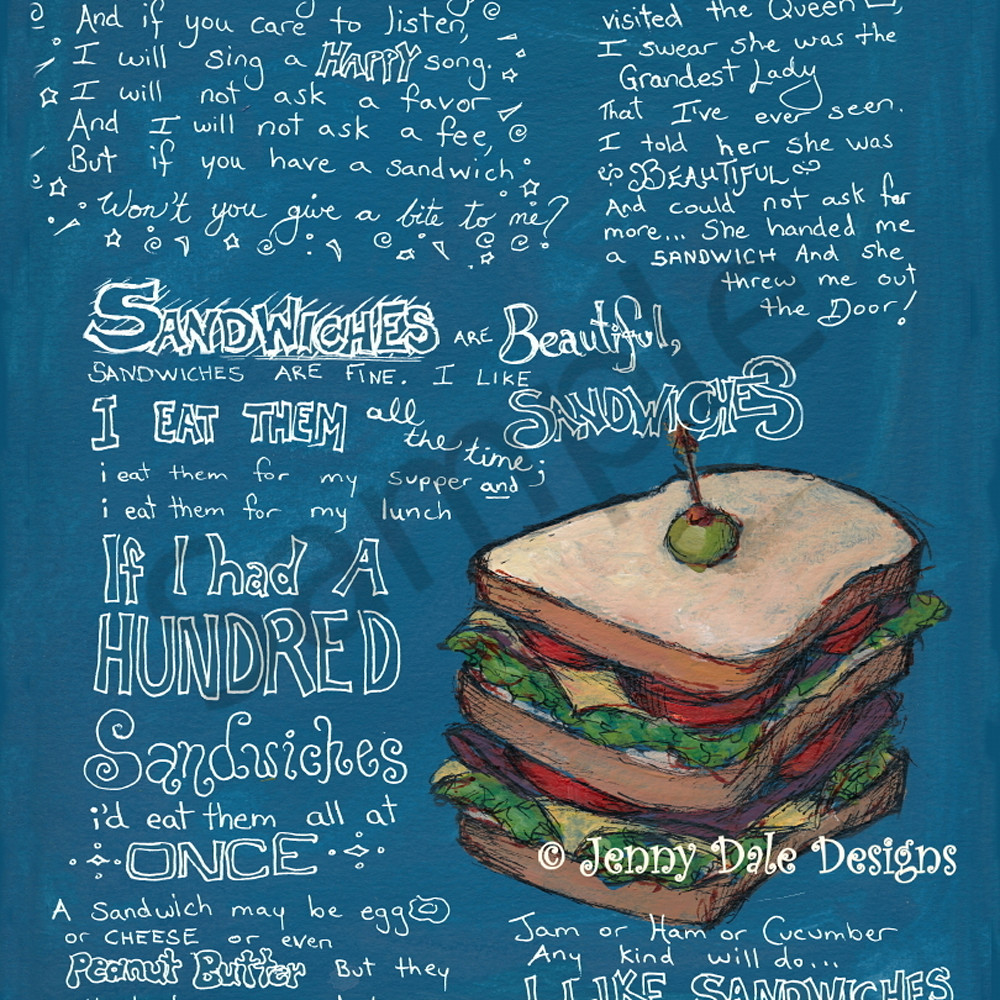 And if you care to listen,
I will sing a HAPPY song.
I will not ask a favor
And I will not ask a fee,
But if you have a sandwich
Won't you give a bite to me?
visited the Queen
I swear she was the
Grandest Lady
That I've ever seen.
I told her she was
BEAUTIFUL
And could not ask for
more... She handed me
a SANDWICH And she
threw me out
the Door!
SANDWICHES ARE Beautiful,
SANDWICHES ARE FINE. I LIKE
SANDWICHES
I EAT THEM all
the time;
i eat them for my supper and
i eat them for my lunch
If I had A
HUNDRED
Sandwiches
i'd eat them all at
ONCE
A Sandwich may be egg
or CHEESE or even
Peanut Butter But they
Jam or Ham or Cucumber
Any kind will do...
I LIKE SANDWICHES
© Jenny Dale Designs
Sample